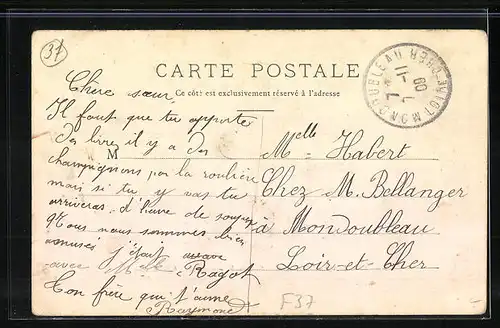 37
CARTE POSTALE
Ce côté est exclusivement réservé à l'adresse
MONDOUBLEAU LOIR-ET-CHER
7 * 11
7 09
Chère sœur,
Il faut que tu apporte
des livres il y a des
champignons, par la roulière
mais si tu y vas tu
arriveras, d'heure de souper
Nous nous sommes bien
amusés j'étais avec
avec Ragot
Ton frère qui t'aime
Raymond
M
Melle Habert
Chez M. Bellanger
à Mondoubleau
Loir-et-Cher
F37